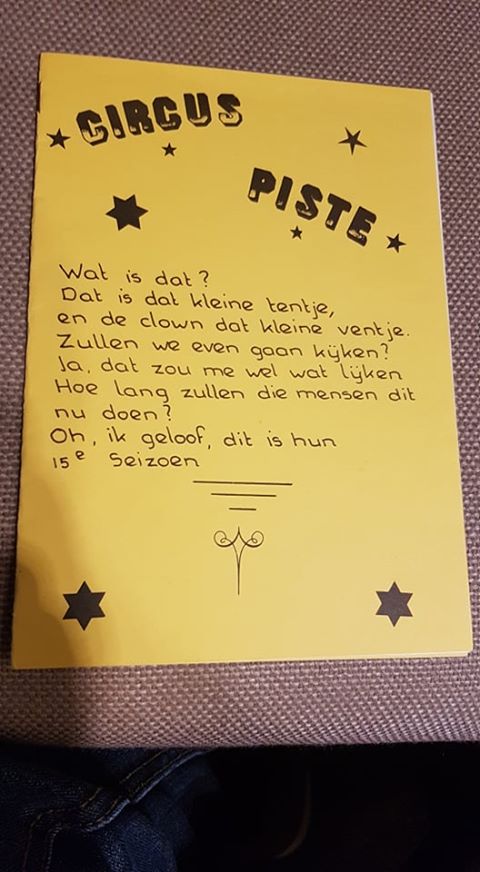 CIRCUS
PISTE
Wat is dat?
Dat is dat kleine tentje,
en de clown dat kleine ventje.
Zullen we even gaan kijken?
Ja, dat zou me wel wat lijken
Hoe lang zullen die mensen dit
nu doen?
Oh, ik geloof, dit is hun
15e Seizoen